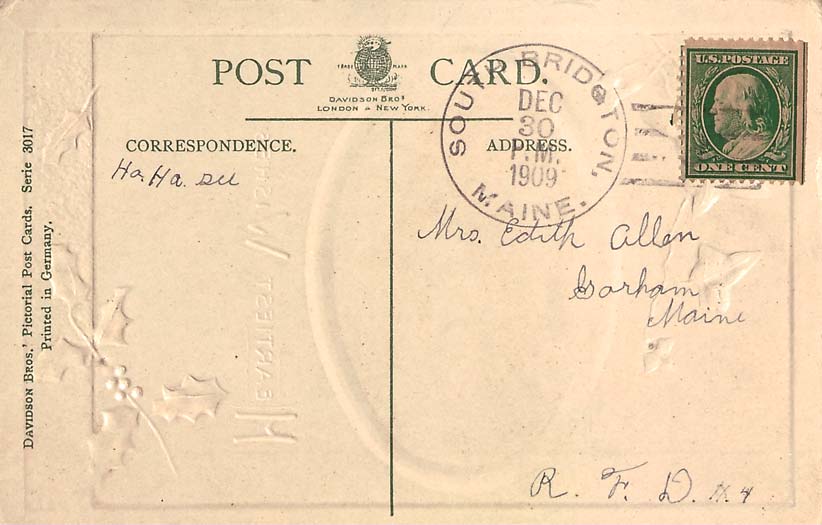 POST CARD.
TRADE MARK
DAVIDSON BROS
LONDON & NEW YORK.
CORRESPONDENCE.
ADDRESS.
SOUTH BRIDGTON, MAINE.
DEC
30
P.M.
1909
U.S. POSTAGE
ONE CENT
Ha. Ha.
Mrs. Edith Allen
Gorham
Maine
R. F. D. # 4
HEARTIEST WISHES
DAVIDSON BROS.' Pictorial Post Cards. Serie 3017
Printed in Germany.